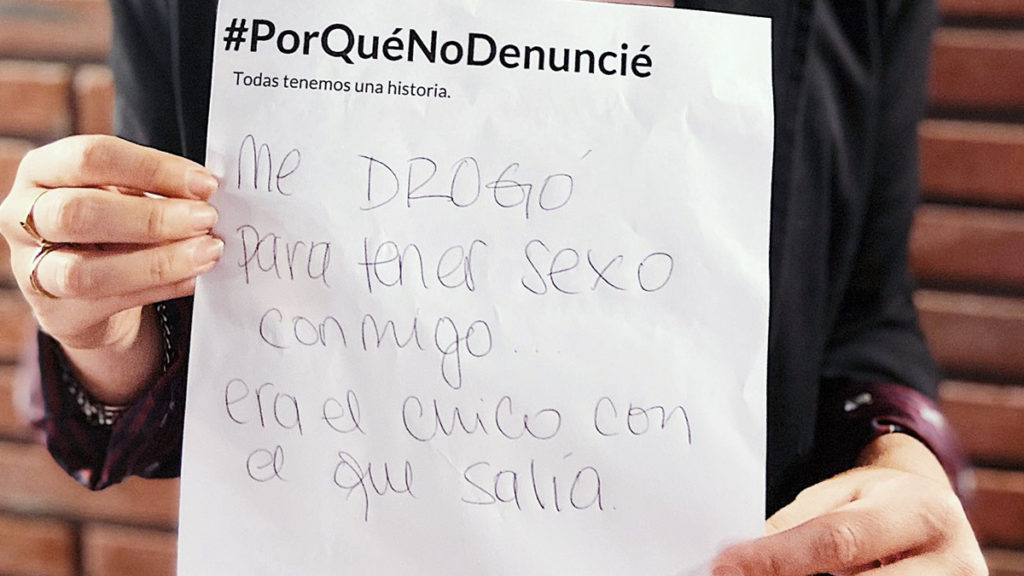 #PorQuéNoDenuncié
Todas tenemos una historia.
Me DROGÓ
para tener sexo
conmigo...
era el chico con
el que salía.